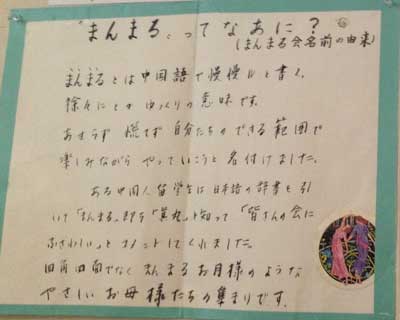 “まんまる”ってなあに?
(まんまる会名前の由来)
まんまるとは中国語で慢慢ルと書く、
徐々にとか ゆっくりの意味です。
あせらず 慌てず 自分たちのできる範囲で
楽しみながら やっていこうと名付けました。
ある中国人留学生は日本語の辞書を引
いて「まんまる」即ち「真丸」と知って「皆さんの会に
ふさわしい」とコメントしてくれました。
四角四面でなく まんまるお月様のような
やさしい お母様たちの集まりです。